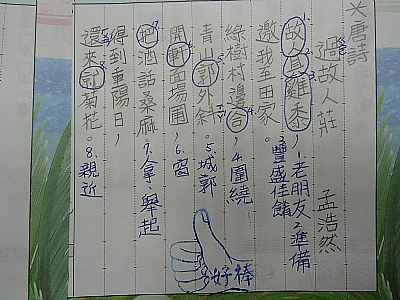 ※唐詩
過故人莊 孟浩然
故人具雞黍，1.老朋友2.準備
3.豐盛佳餚
邀我至田家。
綠樹村邊合，4.圍繞
青山郭外斜。5.城郭
開軒面場圃，6.窗
把酒話桑麻。7.拿、舉起
得到重陽日，
還來就菊花。8.親近
好棒